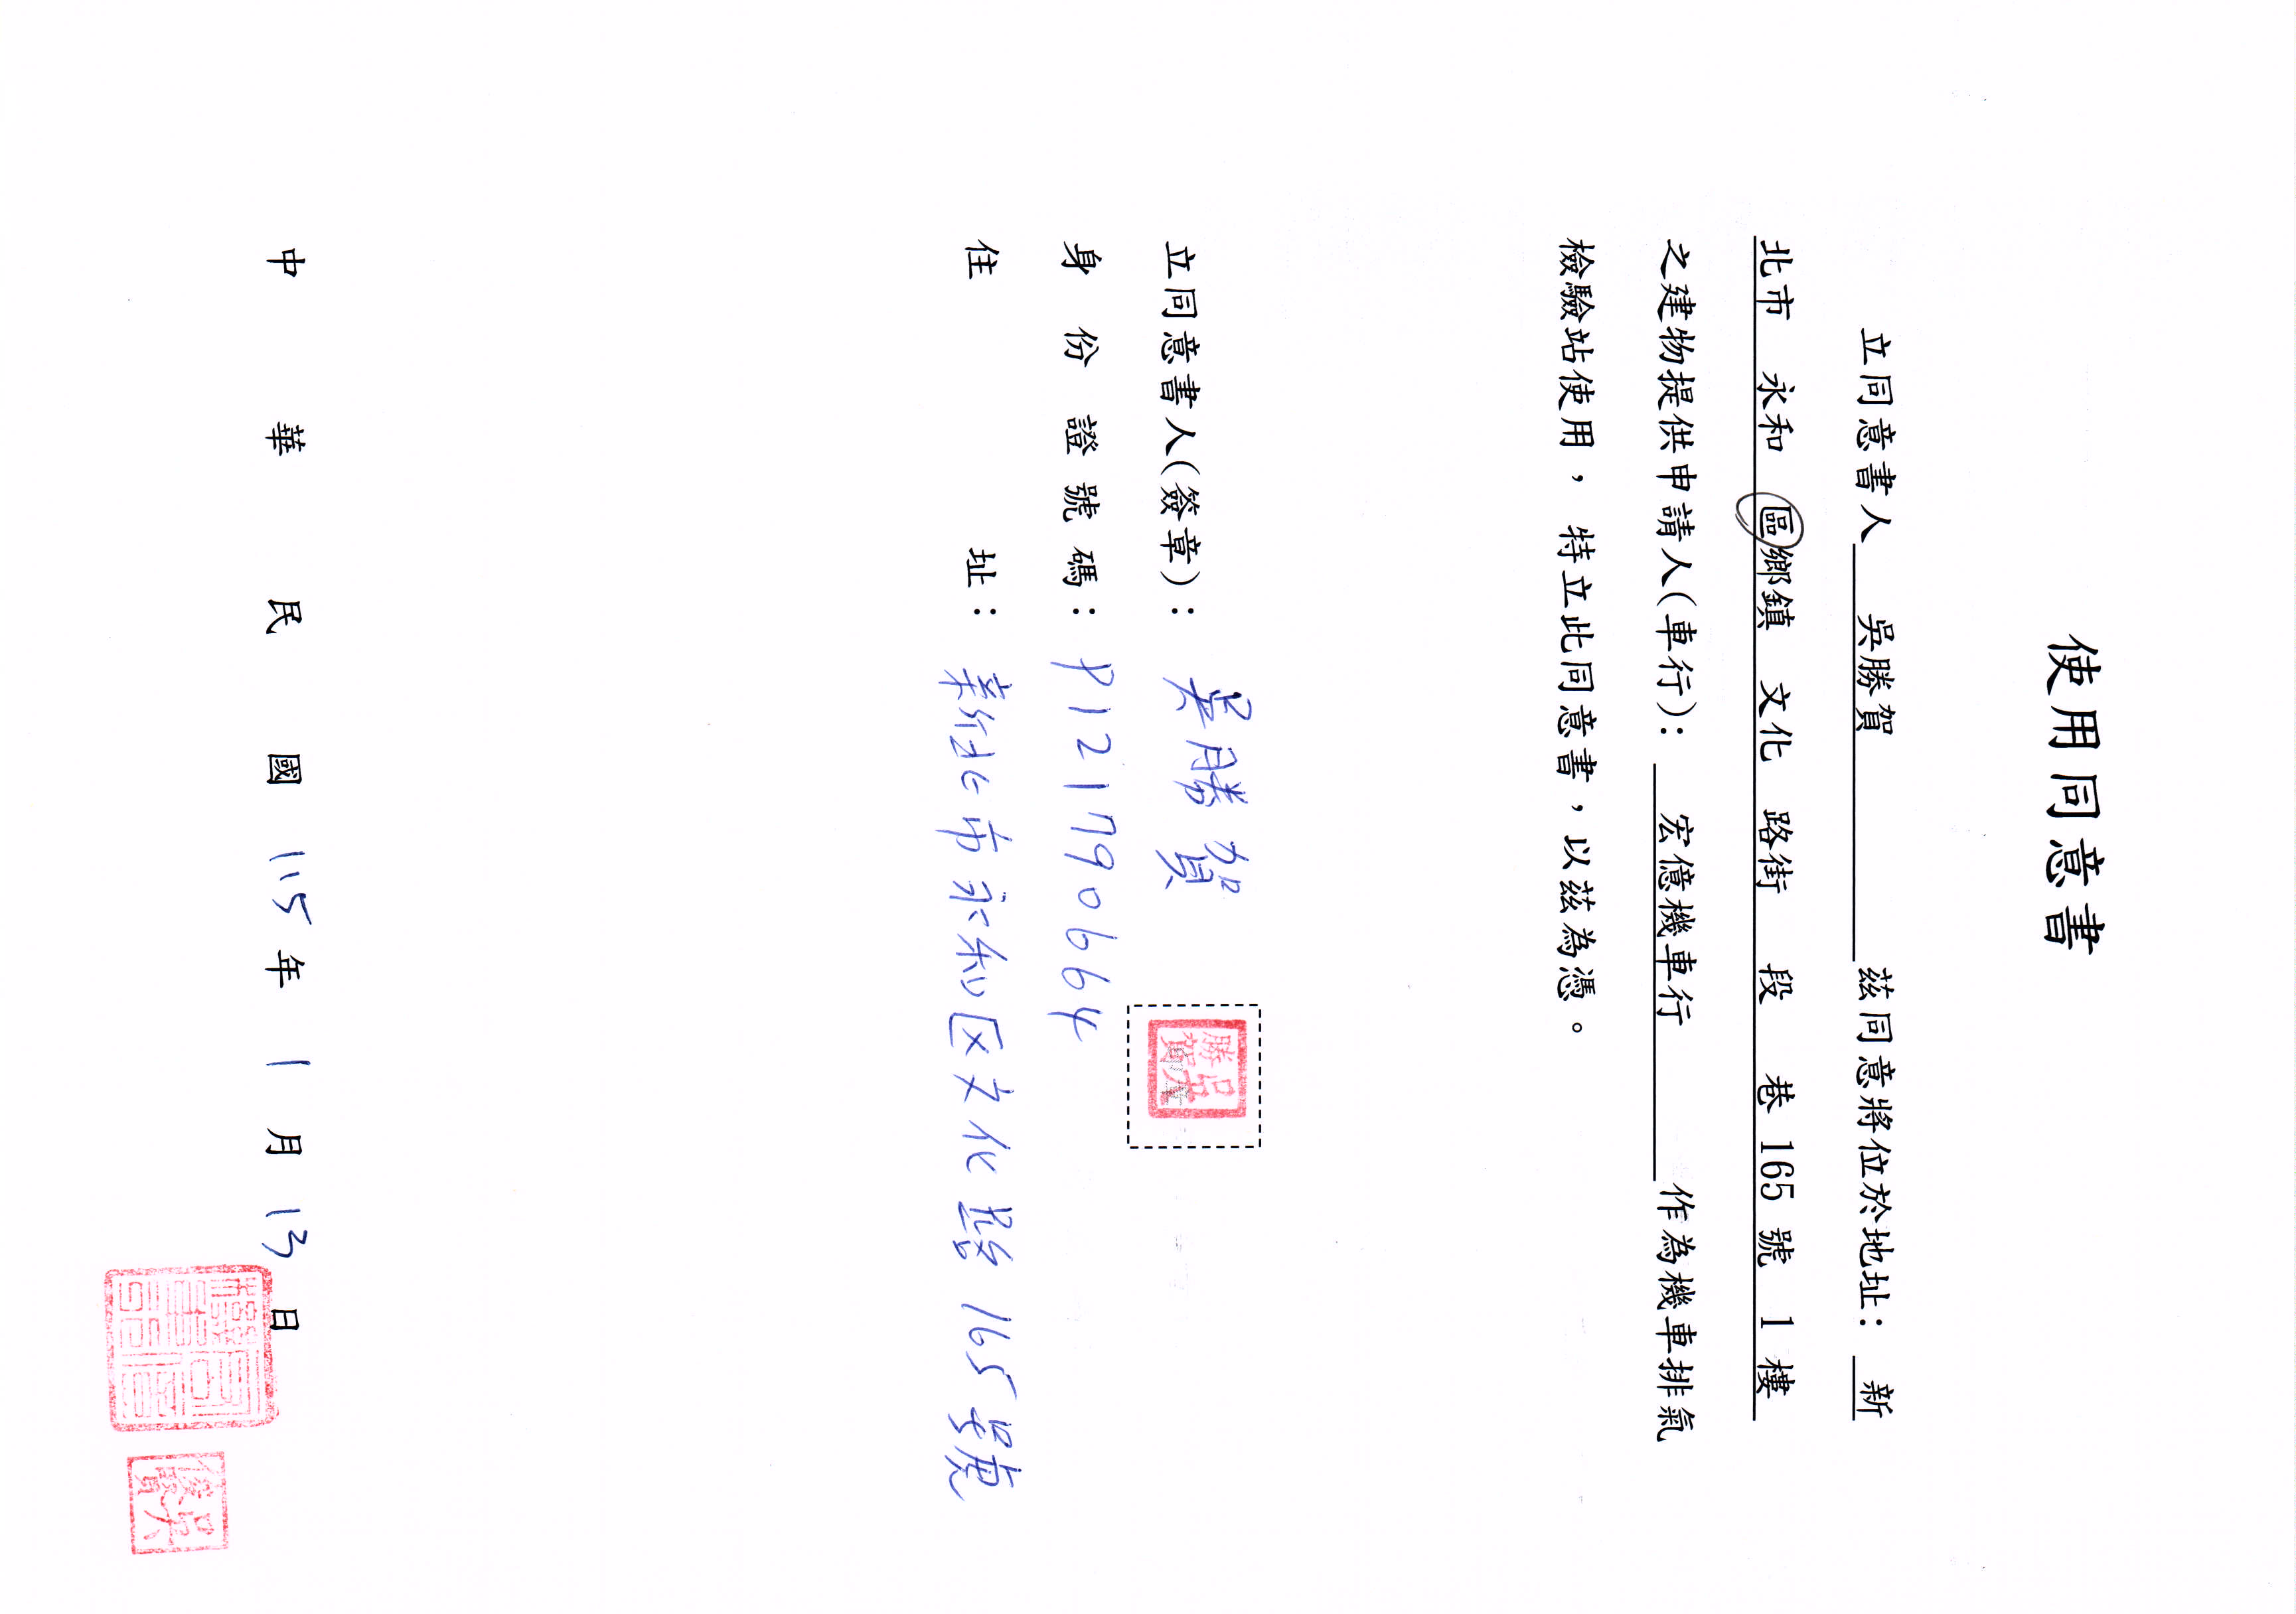 使用同意書
立同意書人 吳勝賀 茲同意將位於地址：新
北市 永和 區鄉鎮 文化 路街 段 巷 165 號 1 樓
之建物提供申請人(車行)： 宏億機車行 作為機車排氣
檢驗站使用， 特立此同意書，以茲為憑。
立同意書人(簽章)：吳勝賀
勝吳
賀
身份證號碼：P121790664
住址：新北市永和区文化路165號
中華民國 115 年 1 月 13 日